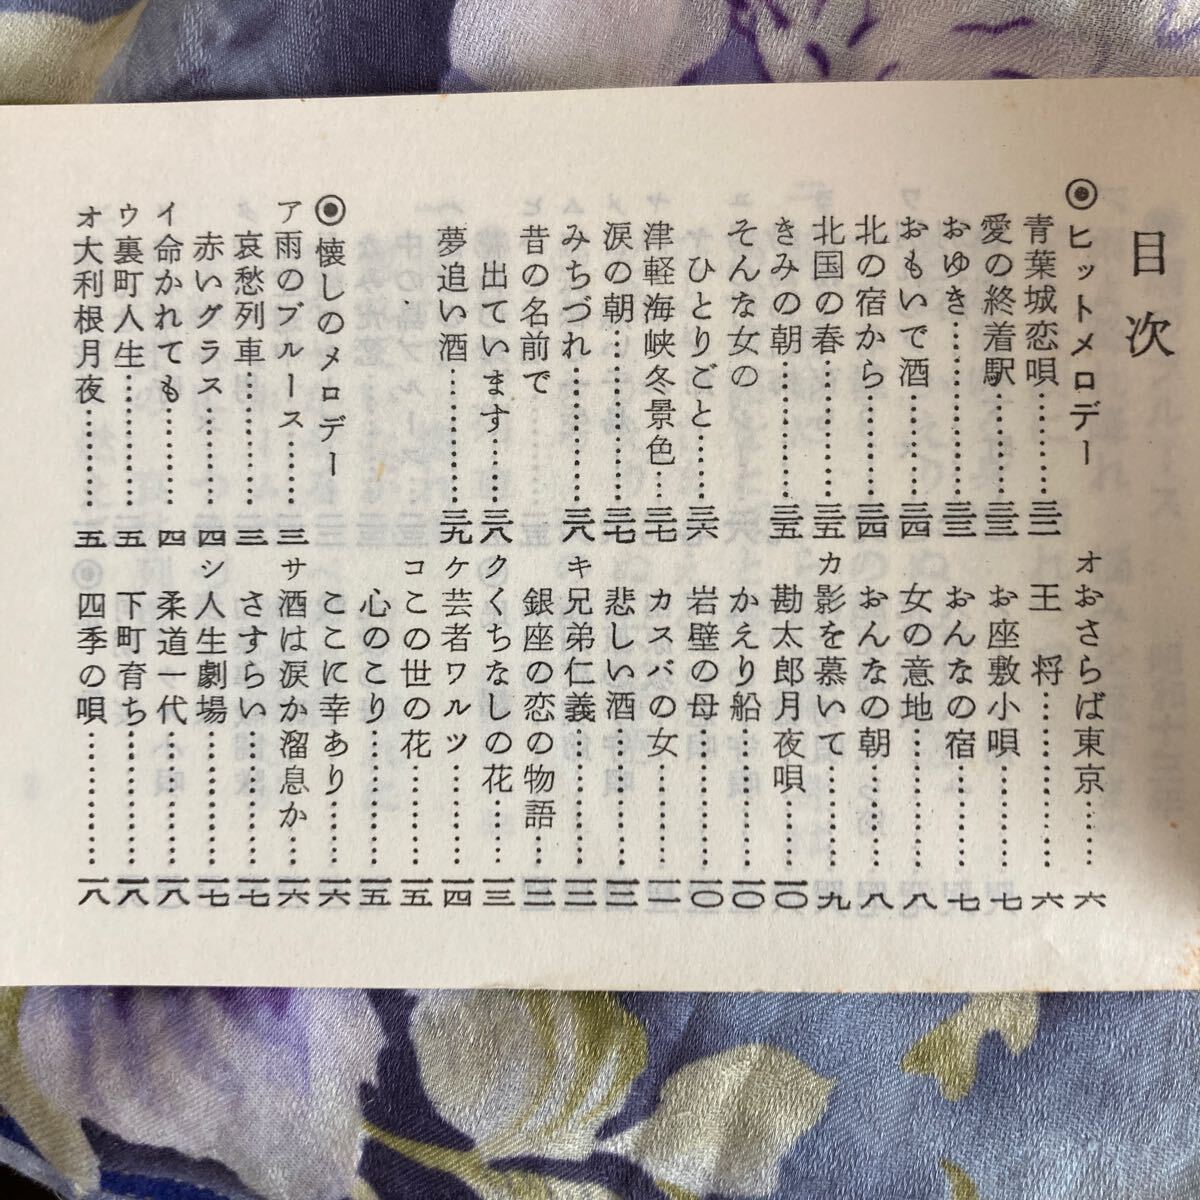 目次
◉ヒットメロデー
青葉城恋唄…………三二
愛の終着駅…………三三
おゆき…………三三
おもいで酒…………三四
北の宿から…………三四
北国の春…………三五
きみの朝…………三五
そんな女の
ひとりごと……三六
津軽海峡冬景色…三七
涙の朝…………三七
みちづれ…………三八
昔の名前で
出ています……三八
夢追い酒…………三九
◉懐しのメロデー
ア雨のブルース……三
哀愁列車…………三
赤いグラス………四
イ命かれても………四
ウ裏町人生…………五
オ大利根月夜………五
オおさらば東京……六
王将…………六
お座敷小唄………七
おんなの宿………七
女の意地…………八
おんなの朝………八
カ影を慕いて………九
勘太郎月夜唄……一〇
かえり船…………一〇
岩壁の母…………一〇
カスバの女………一一
悲しい酒…………一二
キ兄弟仁義…………一二
銀座の恋の物語…一二
クくちなしの花……一三
ケ芸者ワルツ………一四
コこの世の花………一五
心のこり…………一五
ここに幸あり……一六
サ酒は涙か溜息か…一六
さすらい…………一七
シ人生劇場…………一七
柔道一代…………一八
下町育ち…………一八
四季の唄…………一八